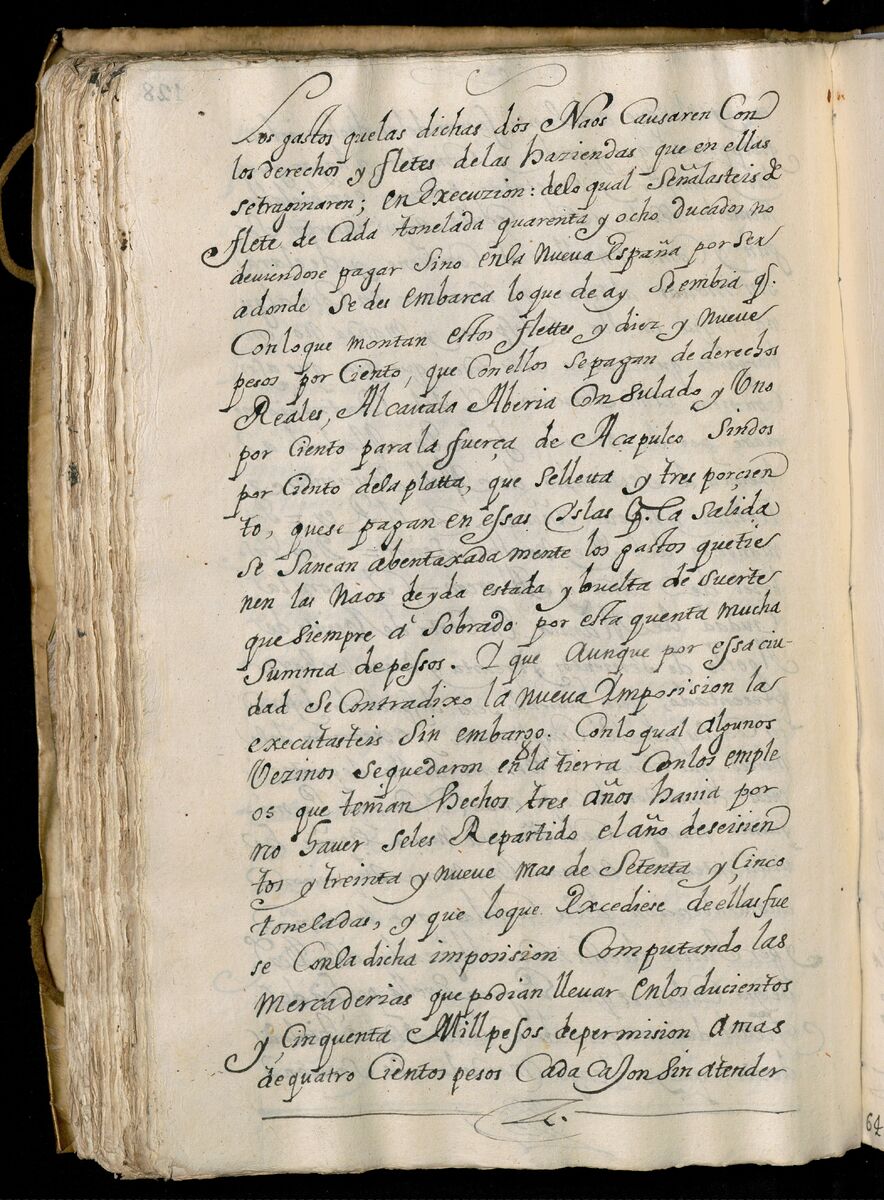 Los gastos quelas dichas dos Naos Causaren Con
los derechos y fletes delas haziendas que en ellas
setraginaren; en Execuzion: delo qual Señalasteis de
flete de Cada tonelada quarenta y ocho ducados no
deviendose pagar Sino enla Nueva España por ser
adonde se des embarca lo que de ay Se embia q.
Conloque montan estos flettes y diez y Nueve
pesos por Ciento, que Con ellos Sepagan de derechos
Reales, Alcauala Aberia Consulado y Uno
por Ciento para la fuerça de Acapulco Sin dos
por Ciento dela platta, que selleua y tres porçien
to, quese pagan en essas Yslas La Salida
se Sanean abentaxadamente los gastos quetie
nen las Naos de yda estada y buelta de suerte
que siempre á Sobrado por esta quenta mucha
Summa de pessos. Y que Aunque por essa ciu-
dad se Contradixo la nueva Ymposision la
executasteis Sin embargo. Conlo qual algunos
Vezinos sequedaron enla tierra Conlos emple
os que tenian hechos tres años hauia por
no haver seles Repartido el año deseisien
tos y treinta y nueve mas de Setenta y Cinco
toneladas, y que loque Excediese de ellas fue
se Conla dicha imposision Computando las
Mercaderias que podian lleuar enlos ducientos
y Cinquenta Mill pesos depermision a mas
de quatro Cientos pesos Cada Caxon Sin atender
128
64